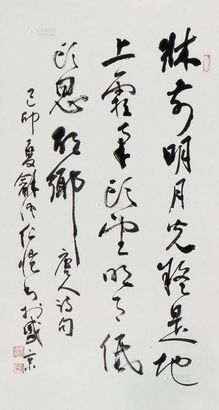 牀前明月光疑是地
上霜举头望明月低
头思故鄉 唐人诗句
己卯夏 书於盛京